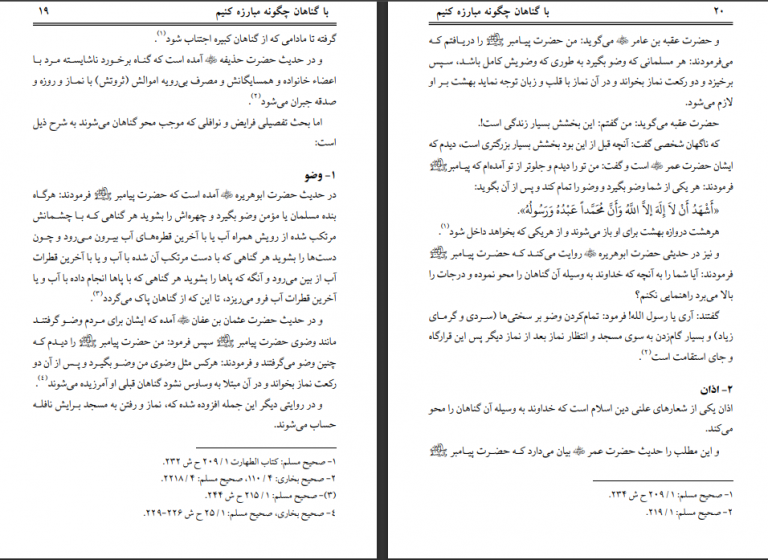 با گناهان چگونه مبارزه کنیم ۱۹
گرفته تا مادامی که از گناهان کبیره اجتناب شود(۱).
و در حدیث حضرت حذیفه ﷺ آمده است که گناه برخورد ناشایسته مرد با
اعضاء خانواده و همسایگانش و مصرف بی‌رویه اموالش (ثروتش) با نماز و روزه و
صدقه جبران می‌شود(۲).
اما بحث تفصیلی فرایض و نوافلی که موجب محو گناهان می‌شوند به شرح ذیل
است:
۱- وضو
در حدیث حضرت ابوهریره آمده است که حضرت پیامبر ﷺ فرمودند: هرگاه
بنده مسلمان یا مؤمن وضو بگیرد و چهره‌اش را بشوید هر گناهی که با چشمانش
مرتکب شده از رویش همراه آب یا با آخرین قطره‌های آب بیرون می‌رود و چون
دست‌ها را بشوید هر گناهی که با دست مرتکب آن شده با آب و یا با آخرین قطرات
آب از بین می‌رود و آنگه که پاها را بشوید هر گناهی که با پاها انجام داده با آب و یا
آخرین قطرات آب فرو می‌ریزد، تا این که از گناهان پاک می‌گردد(۳).
و در حدیث حضرت عثمان بن عفان آمده که ایشان برای مردم وضو گرفتند
مانند وضوی حضرت پیامبر ﷺ سپس فرمود: من حضرت پیامبر ﷺ را دیدم که
چنین وضو می‌گرفتند و فرمودند: هرکس مثل وضوی من وضو بگیرد و پس از آن دو
رکعت نماز بخواند و در آن مبتلا به وساوس نشود گناهان قبلی او آمرزیده می‌شوند(۴).
و در روایتی دیگر این جمله افزوده شده که، نماز و رفتن به مسجد برایش نافله
حساب می‌شوند.
۱- صحیح مسلم: کتاب الطهارت ۱/ ۲۰۹ ح ش ۲۳۲.
۲- صحیح بخاری: ۴/ ۱۱۰، صحیح مسلم: ۴/ ۲۲۱۸.
(۳)- صحیح مسلم: ۱/ ۲۱۵ ح ش ۲۴۴.
۴- صحیح بخاری، صحیح مسلم: ۱/ ۲۵ ح ش ۲۲۶-۲۲۹.
۲۰ با گناهان چگونه مبارزه کنیم
و حضرت عقبه بن عامر می‌گوید: من حضرت پیامبر ﷺ را دریافتم که
می‌فرمودند: هر مسلمانی که وضو بگیرد به طوری که وضویش کامل باشد، سپس
برخیزد و دو رکعت نماز بخواند و در آن نماز با قلب و زبان توجه نماید بهشت بر او
لازم می‌شود.
حضرت عقبه می‌گوید: من گفتم: این بخشش بسیار زندگی است!.
که ناگهان شخصی گفت: آنچه قبل از این بود بخشش بسیار بزرگتری است، دیدم که
ایشان حضرت عمر است و گفت: من تو را دیدم و جلوتر از تو آمده‌ام که پیامبر ﷺ
فرمودند: هر یکی از شما وضو بگیرد و وضو را تمام کند و پس از آن بگوید:
«أَشْهَدُ أَنْ لاَ إِلَهَ إِلاَّ اللَّهُ وَأَنَّ مُحَمَّداً عَبْدُهُ وَرَسُولُهُ».
هرهشت دروازه بهشت برای او باز می‌شوند و از هریکی که بخواهد داخل شود(۱).
و نیز در حدیثی حضرت ابوهریره روایت می‌کند که حضرت پیامبر ﷺ
فرمودند: آیا شما را به آنچه که خداوند به وسیله آن گناهان را محو نموده و درجات را
بالا می‌برد راهنمایی نکنم؟
گفتند: آری یا رسول الله! فرمود: تمام‌کردن وضو بر سختی‌ها (سردی و گرمای
زیاد) و بسیار گام‌زدن به سوی مسجد و انتظار نماز بعد از نماز دیگر پس این قرارگاه
و جای استقامت است(۲).
۲- اذان
اذان یکی از شعارهای علنی دین اسلام است که خداوند به وسیله آن گناهان را محو
می‌کند.
و این مطلب را حدیث حضرت عمر بیان می‌دارد که حضرت پیامبر ﷺ
۱- صحیح مسلم: ۱/ ۲۰۹ ح ش ۲۳۴.
۲- صحیح مسلم: ۱/ ۲۱۹.